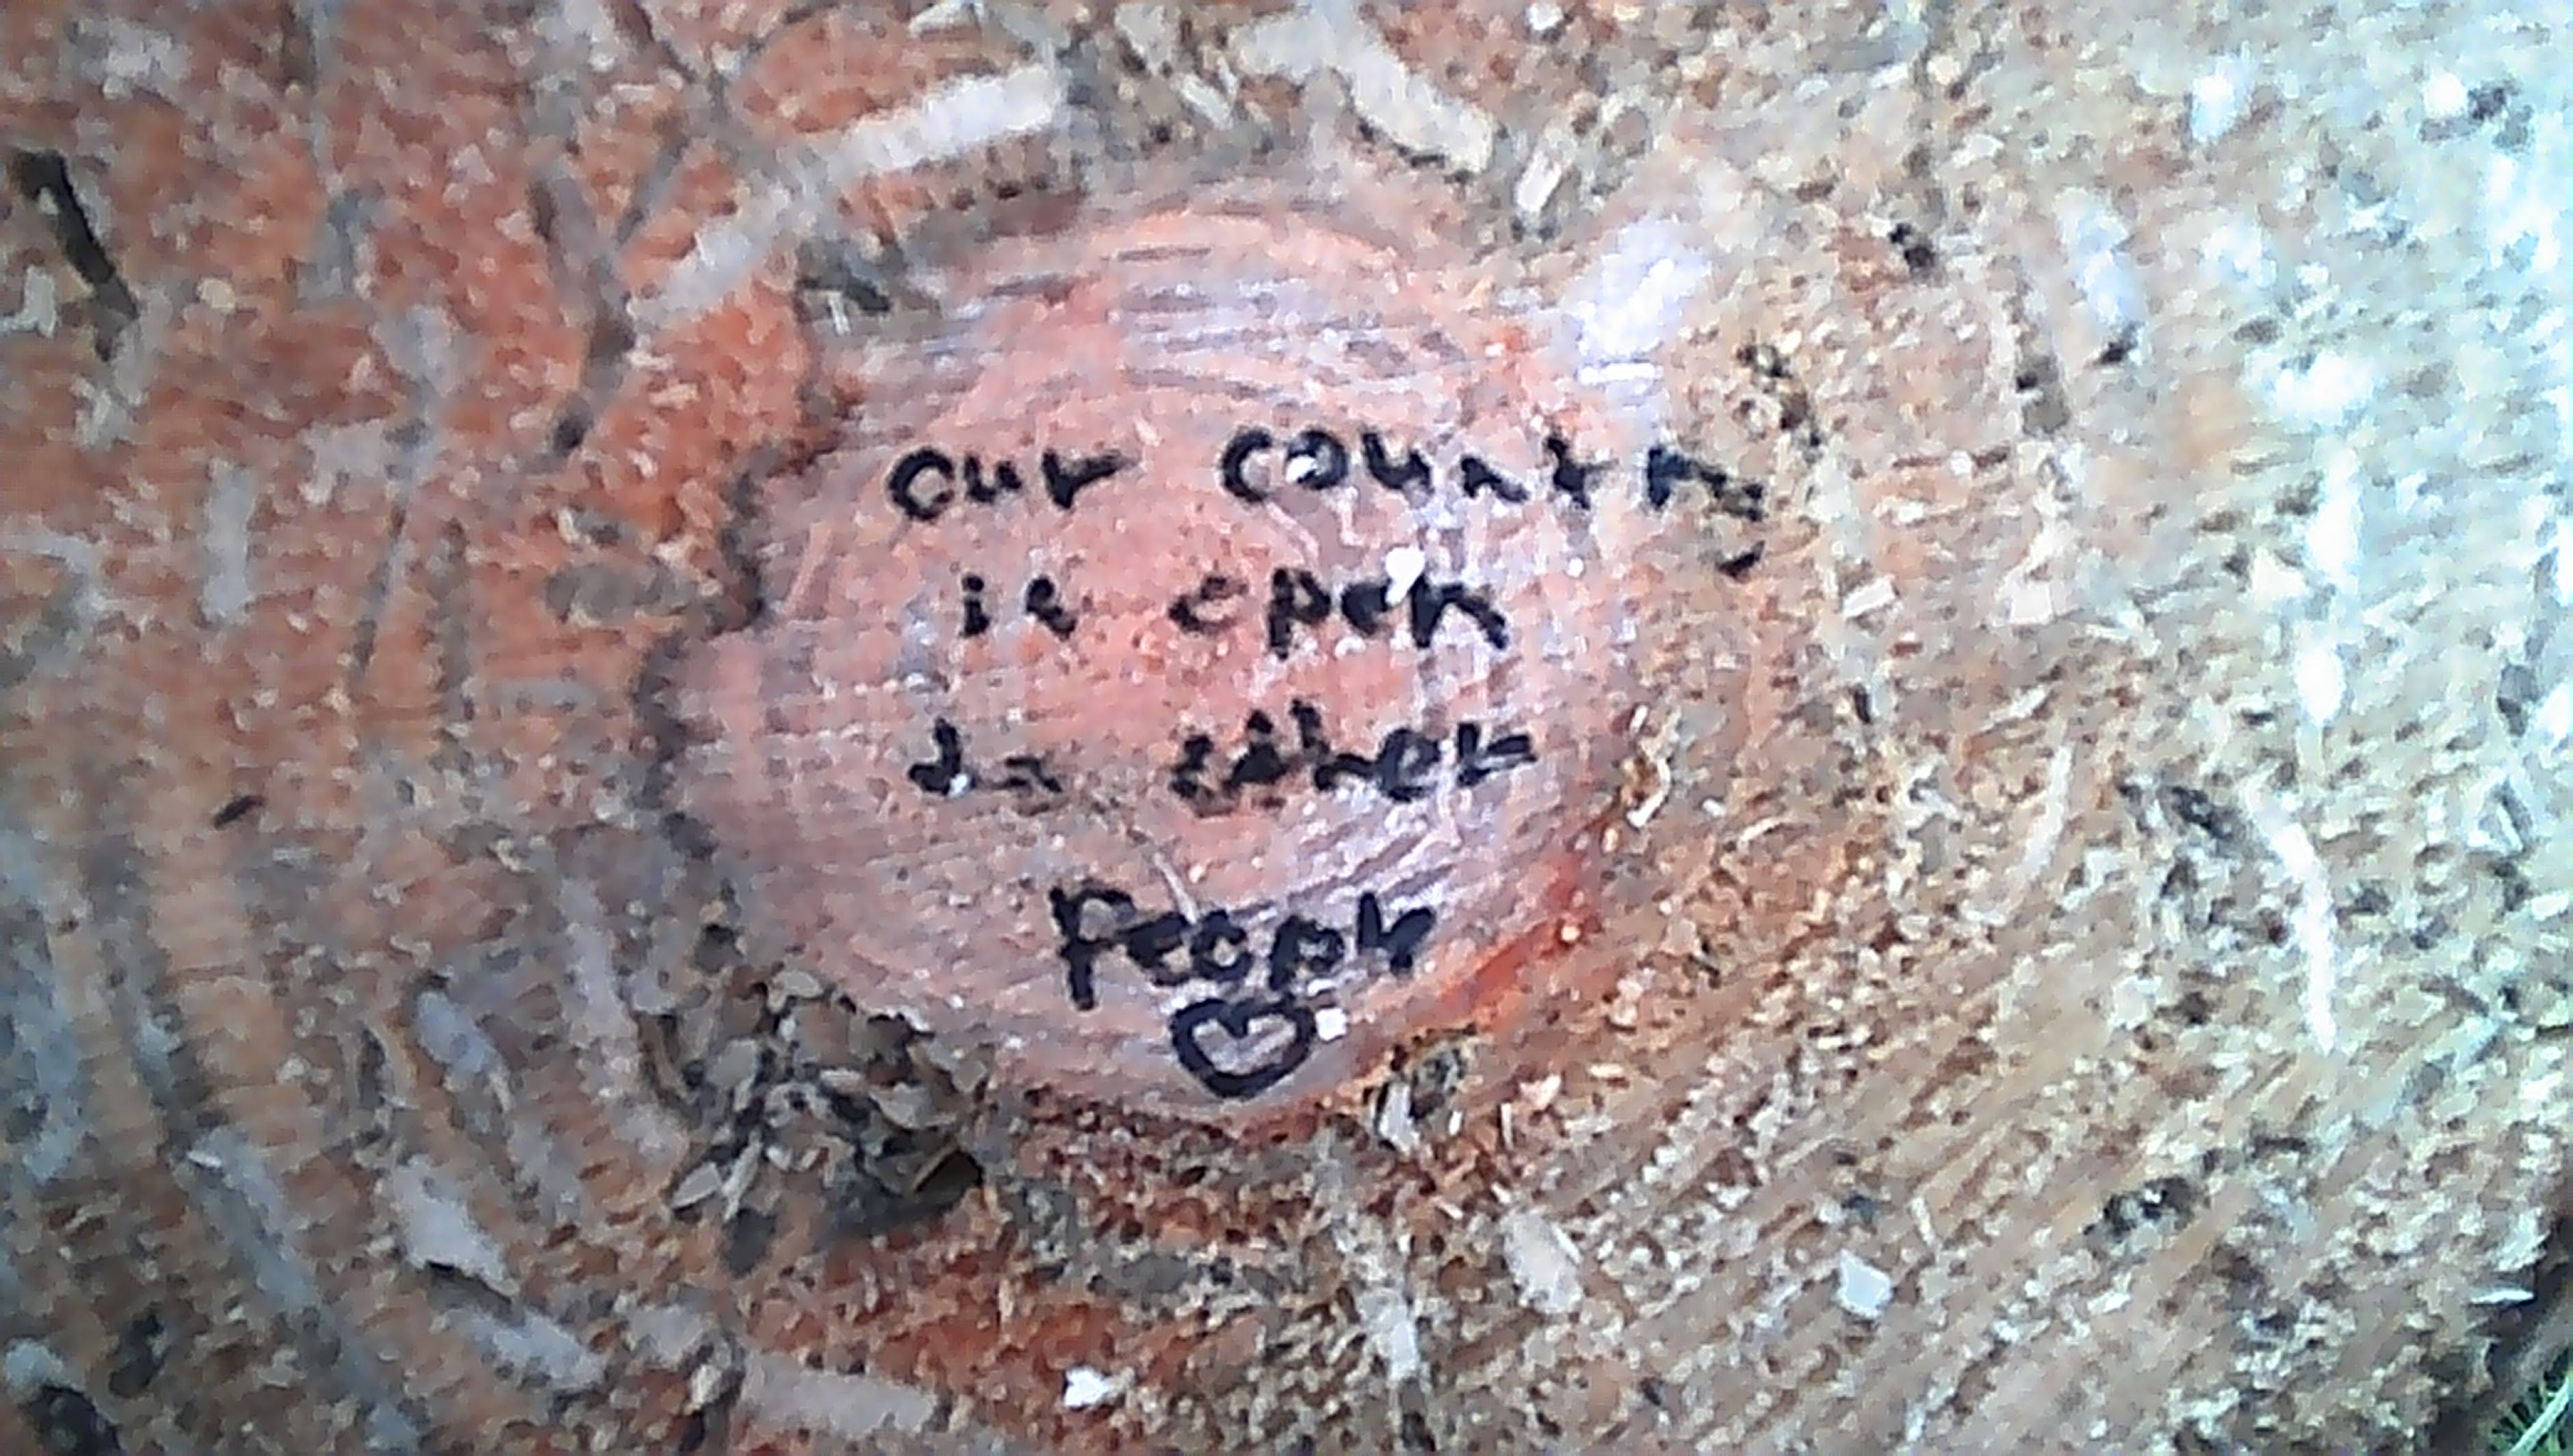 our country
is open
to other
People